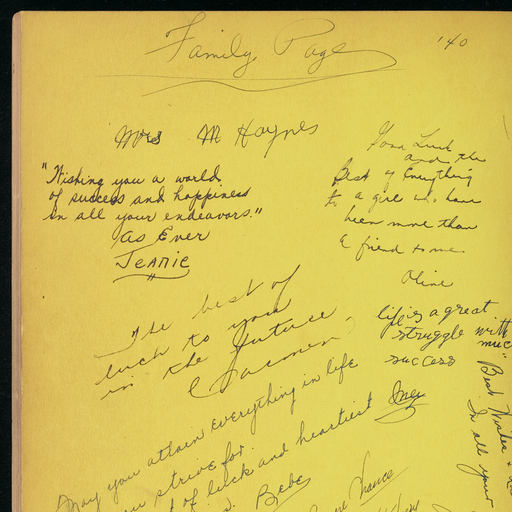 Family Page
'40
Mrs M Haynes
"Wishing you a world
of success and happiness
in all your endeavors."
As Ever
Jeanie
Good Luck
and the
Best of Everything
to a girl who has
been more than
a friend to me
Oline
The best of
luck to you
in the future.
life is a great
struggle with
success
May you attain everything in life
you strive for.
of luck and heartiest
Bebe
Best Wishes
In all your